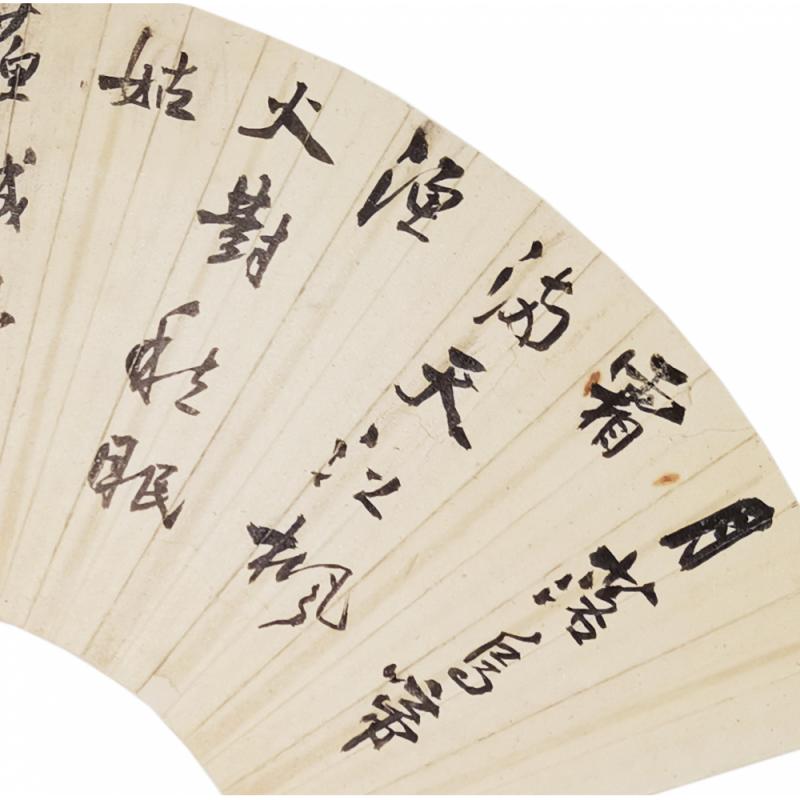 月落烏啼
霜
滿天江楓
漁
火對愁眠
姑
蘇城